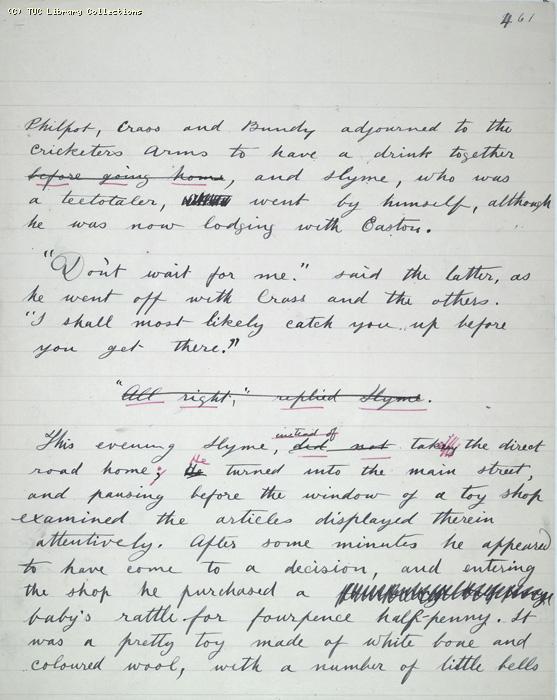 (C) TUC Library Collections
461
Philpot, Crass and Bundy adjourned to the
Cricketers Arms to have a drink together
before going home, and Slyme, who was
a teetotaler, went by himself, although
he was now lodging with Easton.
"Don't wait for me." said the latter, as
he went off with Crass and the others.
"I shall most likely catch you up before
you get there."
"All right," replied Slyme.
This evening Slyme, instead of did not taking the direct
road home; He He turned into the main street,
and pausing before the window of a toy shop
examined the articles displayed therein
attentively. After some minutes he appeared
to have come to a decision, and entering
the shop he purchased a
baby's rattle for fourpence half-penny. It
was a pretty toy made of white bone and
coloured wool, with a number of little bells